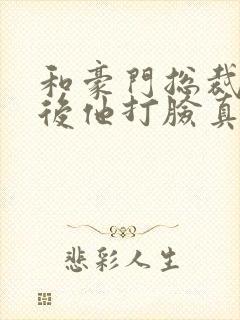 和豪門總裁
後他打臉真
悲彩人生